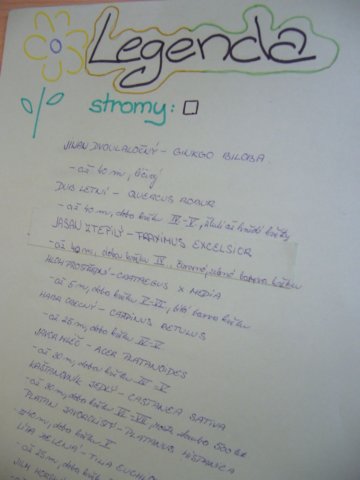 Legenda
stromy:
JINAN DVOULALOČNÝ - GINKGO BILOBA
- až 40 m, léčivý
DUB LETNÍ - QUERCUS ROBUR
- až 40 m, doba květu IV-V, žluté až hnědé květy
JASAN ZTEPILÝ - FRAXIMUS EXCELSIOR
- až 40m, doba květu IV, barva květu
HLOH PROSTŘEDNÍ - CRATAEGUS X MEDIA
- až 5 m, doba květu V-VI, bílá barva květu
HABR OBECNÝ - CARPINUS BETULUS
- až 25 m, doba květu IV-V
JAVOR MLÉČ - ACER PLATANOIDES
- až 30 m, doba květu IV-V
KAŠTANOVNÍK JEDLÝ - CASTANEA SATIVA
- až 30 m, doba květu VI-VII, 500 let
PLATAN JAVOROLISTÝ - PLATANUS HISPANICA
až 40 m, doba květu V
LÍPA ZELENÁ - TILIA EUCHLORA
- až 25 m, doba
JILM